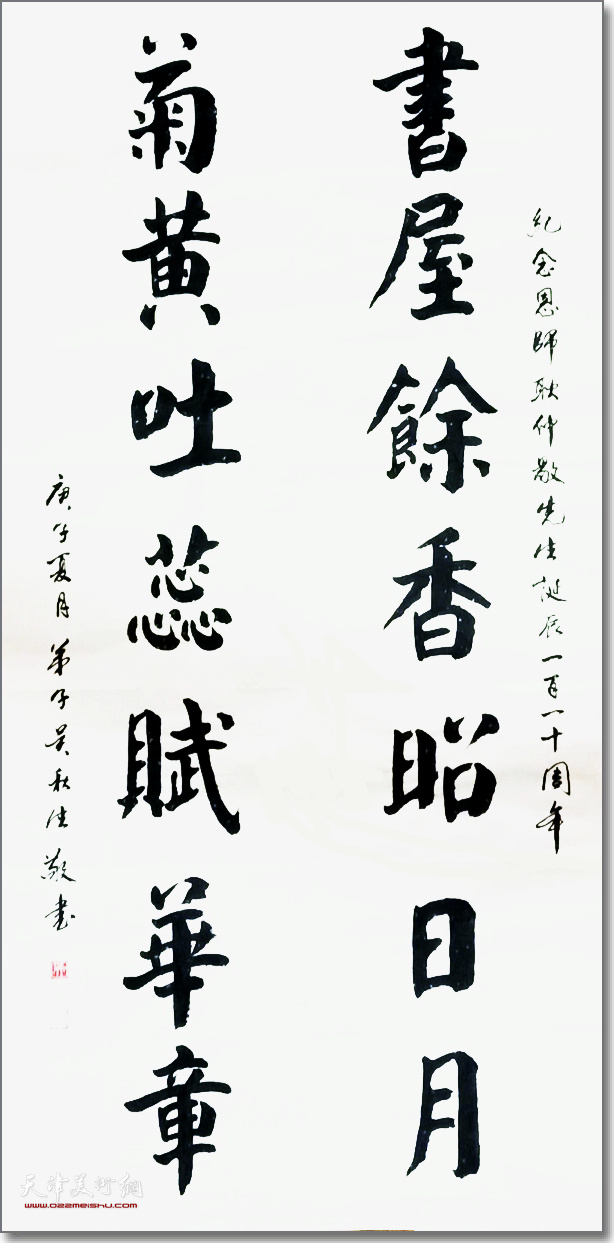 紀念恩師耿仲敭先生誕辰一百一十周年
書屋餘香昭日月
菊黄吐蕊賦華章
庚子夏月弟子吴秋生敬書
天津美術網
www.022meishu.com